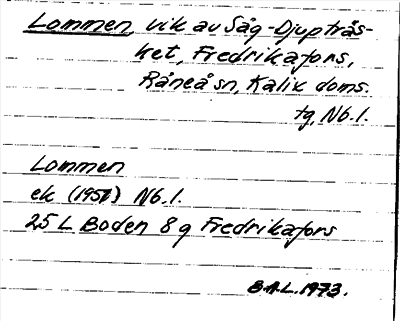 Lommen, vik av Såg-Djupträs-
ket, Fredrikafors,
Råneå sn, Kalix doms.
tg, Nb. l.
Lommen
ek (1950) Nb. l.
25 L Boden 8 g Fredrikafors
B.A.L. 1973.